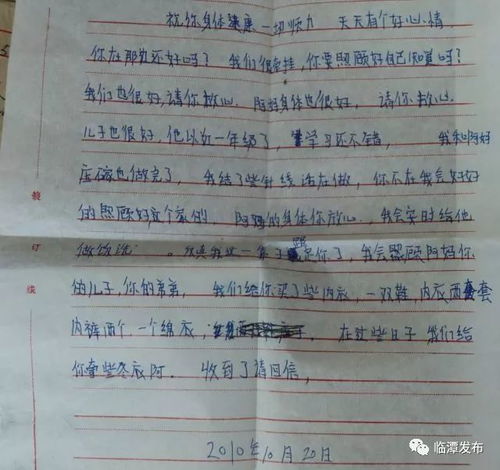 祝你身体健康一切顺力 天天有个好心情
你在那边还好吗？我们很牵挂，你要照顾好自己知道吗？
我们也很好，请你放心。阿妈身体也很好，请你放心。
儿子也很好，他以近一年级了，学习还不错，我和阿妈
也做完了，我结了些针线活在做，你不在我会好好
的照顾好这个家的。阿妈的身体你放心，我会安时给他
做饭洗 。是你了，我会照顾阿妈你
的儿子，你的弟弟，我们给你买了些内衣，一双鞋，内衣两套
内裤两个，一个绵衣，在这些日子我们给
你拿些冬衣阿。收到了请回信，
2010年10月20日
装
订
线
临潭发布